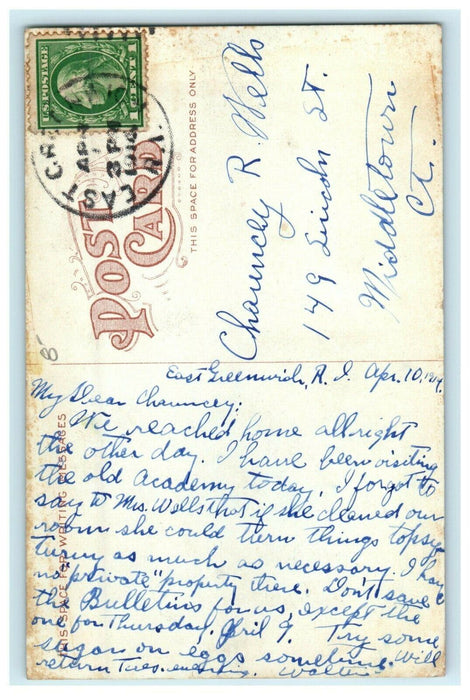 U.S. POSTAGE
1 CENT 1
EAST
APR
3 PM
R.I.
POST CARD
THIS SPACE FOR ADDRESS ONLY
Chauncey R. Wells
149 Lincoln St.
Middletown
Ct.
8
THIS SPACE FOR WRITING MESSAGES
East Greenwich, R. I. Apr. 10, 1914.
My Dear Chauncey:
We reached home allright
the other day. I have been visiting
the old academy today. I forgot to
say to Mrs. Wells that if she cleaned our
room she could turn things topsy
turvy as much as necessary. I have
no "private" property there. Don't save
the Bulletins for us, except the
one for Thursday, April 9. Try some
sugar on eggs sometime. Will
return Tues. evening. Walter